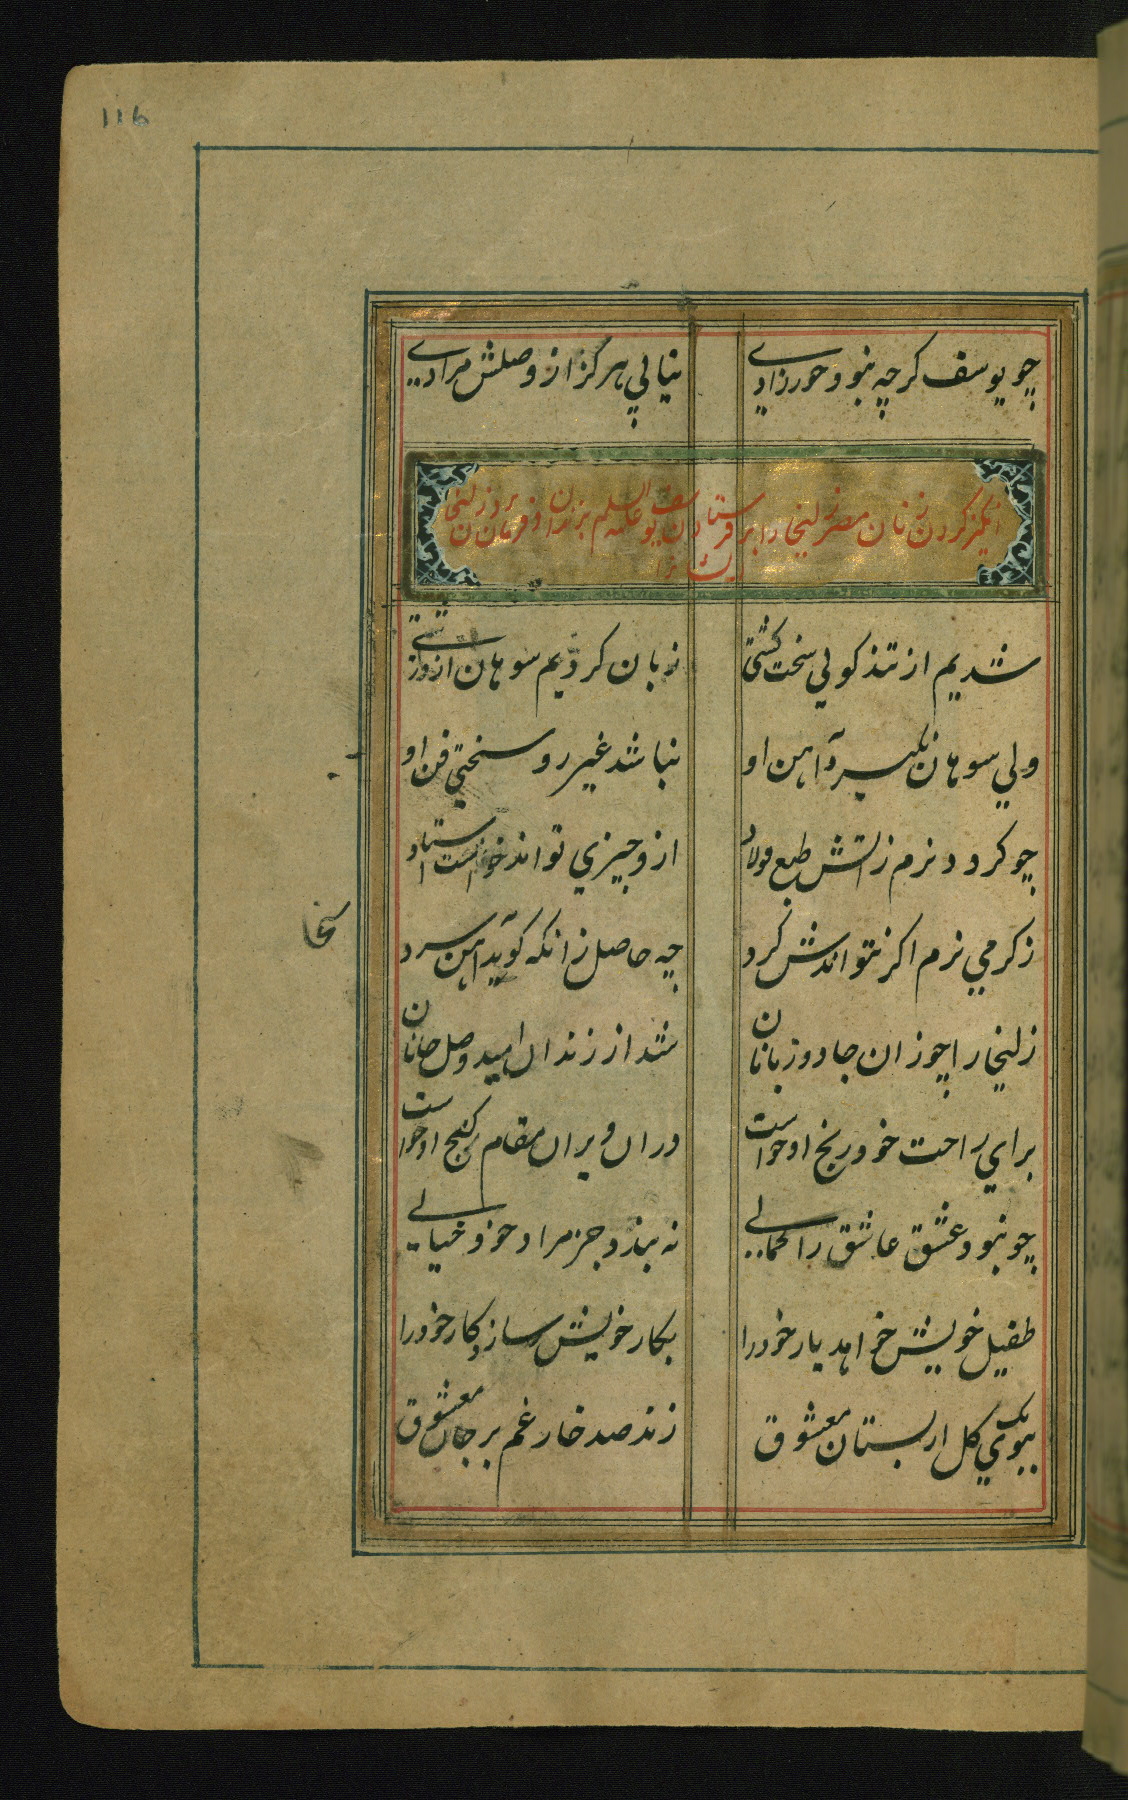 116
چو یوسف کرچه نبود حورزادی
نیابی هرکز از وصلش مرادی
انکیز کردن زنان مصر زلیخا را بر فرستادن یوسف علیه السلم بزندان و فرمان بردن زلیخا
ایشانرا
شدیم از تندکویی سخت کشتی
زبان کردیم سوهان از درشتی
ولی سوهان نکیرد آهن او
نباشد غیر رو سختی فن او
چو کردد نرم زاتش طبع فولاد
ازو چیزی تواند خواست استاد
ز کرمی نرم اکر نتواندش کرد
چه حاصل زانکه کوید آهن سرد
زلیخا را چو زان جادو زبانان
شد از زندان امید وصل جانان
برای راحت خود رنج او خواست
دران ویران مقام کنج او خواست
چو نبود عشق عاشق را کمالی
نه بندد جز مراد خود خیالی
طفیل خویش خواهد یار خود را
بکار خویش سازد کار خود را
ببوی یک کل از بستان معشوق
زند صد خار غم بر جان معشوق